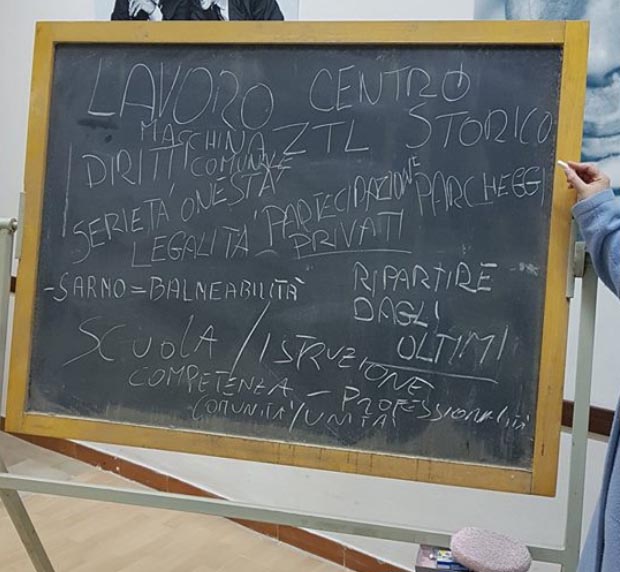 LAVORO CENTRO
MACCHINA ZTL STORICO
DIRITTI COMUNALE
SERIETA' ONESTA' PARTECIPAZIONE PARCHEGGI
LEGALITA' PRIVATI
- SARNO = BALNEABILITÀ
RIPARTIRE
DAGLI
ULTIMI
SCUOLA / ISTRUZIONE
COMPETENZA - PROFESSIONALITÀ
COMUNITA' / UNITA'